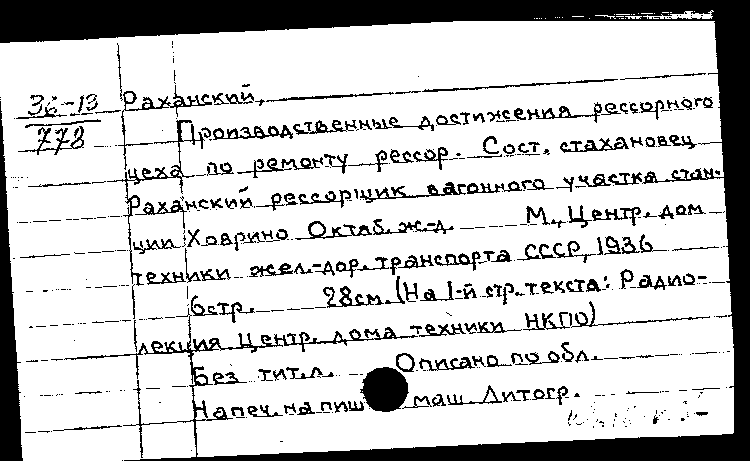 36-13
778
Раханский,
Производственные достижения рессорного
цеха по ремонту рессор. Сост. стахановец
Раханский рессорщик вагонного участка стан-
ции Ховрино Октяб. ж-д. М., Центр. дом
техники жел.-дор. транспорта СССР, 1936
6стр. 28см. (На 1-й стр. текста: Радио-
лекция Центр. дома техники НКПС)
Без тит.л. Описано по обл.
Напеч. на пиш маш. Литогр.